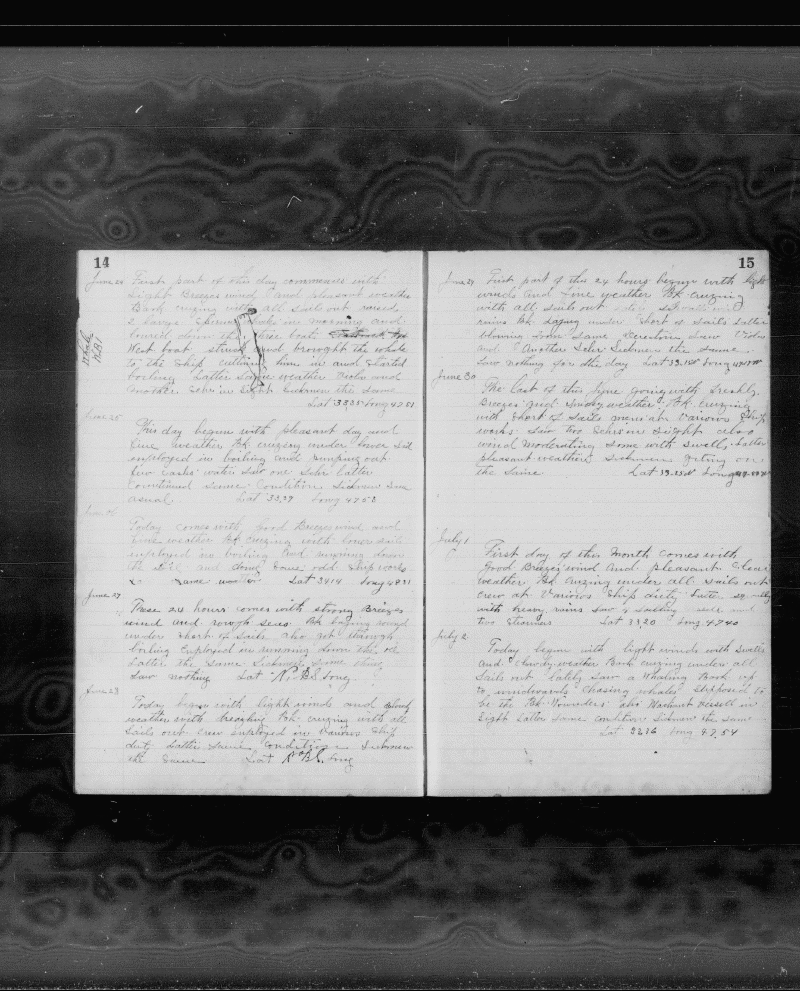 14
June 24 First part of this day commences with
Light Breezes wind and pleasant weather
Bark cruzing with all sail out raised
2 large Sperm in morning and
loured down three boats
West boat struck and brought the whale
to the Ship cutting him in and started
boiling Latter Same weather and
another Schr in Sight Sickmen the same
Lat 3335 Long 4751
June 25
This day begins with pleasant day and
fine weather Bk cruzing under lower sail
employed in boiling and pumping out
few casks water Saw one Schr latter
Continued Same Condition Sickmen Same
as usual. Lat 33,39 Long 4758
June 26
Today comes with good Breezes wind and
fine weather Bk cruzing with lower sails
employed in boiling and running down
the oil and doing some odd Ship works
Same weather Lat 3414 Long 4831
June 27
These 24 hours comes with strong Breezes
wind and rough seas Bk
under Short of Sails also got through
boiling Employed in running down the oil
Latter the Same Sickmen same thing
Saw nothing Lat No BS Long
June 28
Today began with light winds and cloudy
weather with breaking Bk cruzing with all
Sails out crew employed in Various Ship
duty Latter Same Condition Sickmen
the Same Lat No BS. Long
15
June 29 First part of this 24 hours begun with light
winds and fine weather Bk Cruzing
with all Sails out
rains Bk under Short of Sails Latter
blowing Some Same
and Another Schr Sickmen the Same.
Saw nothing for the day Lat 33.15N Long
June 30
The last of this June going with freshly
Breezes and Smoky weather. Bk Cruzing
with Short of Sails men in Various Ship
works. Saw two Schr in Sight also
wind Moderating Some with Swells. Latter
pleasant weather Sickmen on
the Same Lat 33.25N Long
July 1
First day of this Month comes with
Good Breezes wind and pleasant Clear
weather Bk Cruzing under all Sails out
crew at Various Ship duty Latter squally
with heavy rains Saw a Sailing and
two Steamers Lat 33,20 Long 4740
July 2
Today begin with light winds with Swells
and Cloudy weather Bark cruzing under all
Sails out Lately Saw a Whaling Bark up
to windward Chasing whales Supposed to
be the Bk Wanderer also Merchant vessell in
Sight Latter same condition Sickmen the same
Lat 3236 Long 47,54